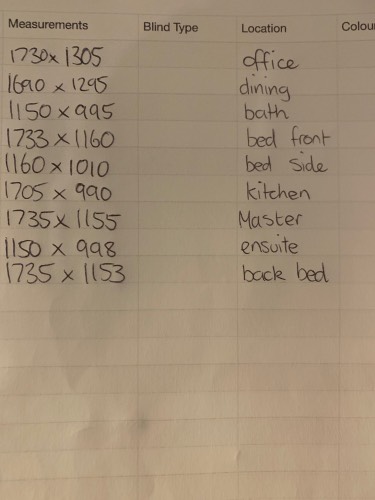 Measurements Blind Type Location Colou
1730 x 1305 office
1690 x 1295 dining
1150 x 995 bath
1733 x 1160 bed front
1160 x 1010 bed side
1705 x 990 kitchen
1735 x 1155 Master
1150 x 998 ensuite
1735 x 1153 back bed